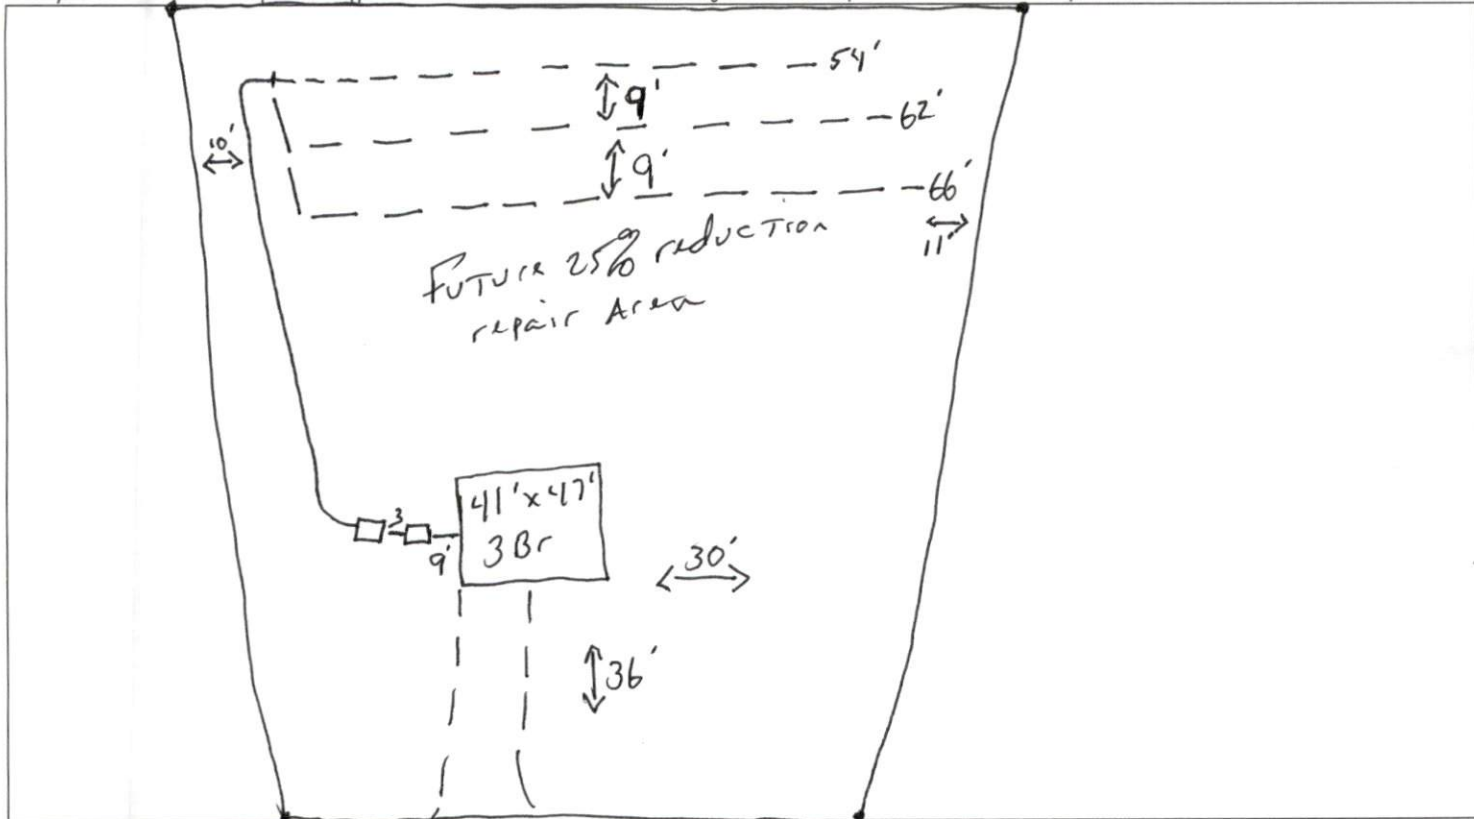 54'
9'
62'
10'
9'
66'
11'
Future 25% reduction
repair Area
41' x 47'
3 Br
3
9'
30'
36'